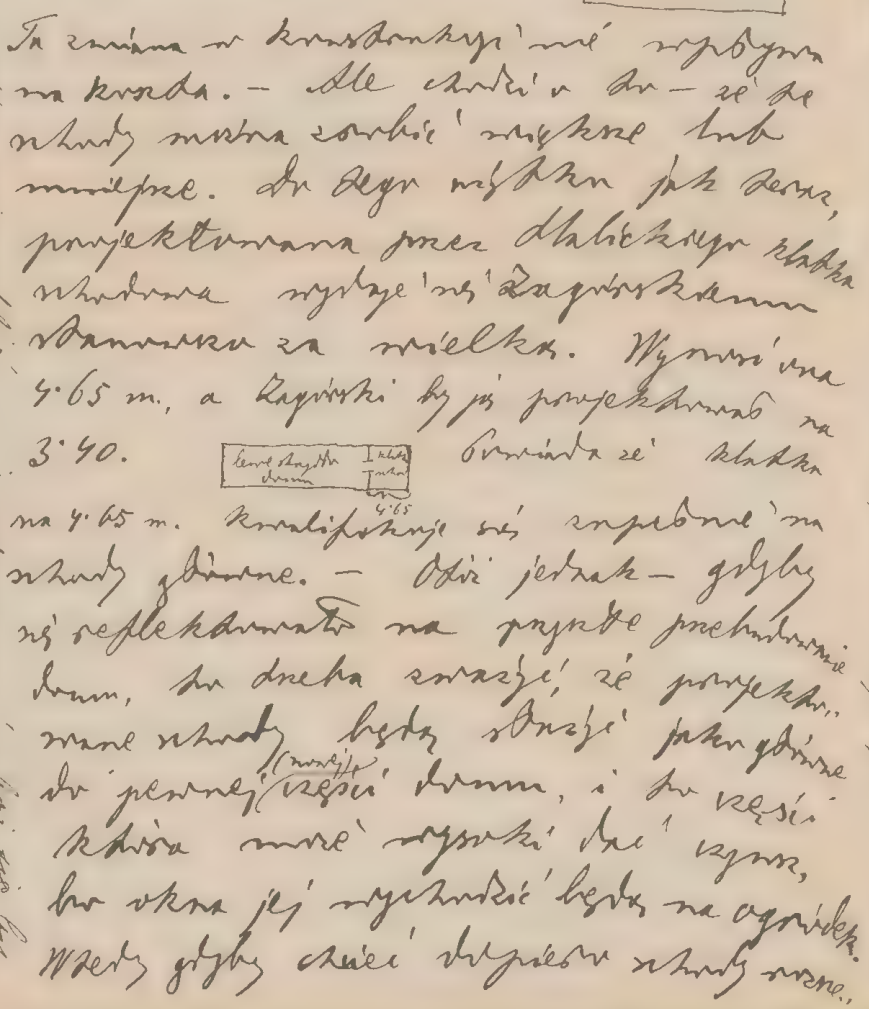 Ta zmiana w konstrukcyi nie wpływa
na koszta. – Ale chodzi o to – że te
schody można zrobić większe lub
mniejsze. Do tego użytku jak teraz,
projektowana przez Hlalickiego klatka
schodowa wydaje się Zagórskiemu
stanowczo za wielka. Wynosi ona
4·65 m., a Zagórski by ją projektował na
3·40. Powiada że klatka
4·65
na 4·65 m. kwalifikuje się zupełnie na
schody główne. – Otóż jednak – gdyby
się reflektowało na przyszłe przebudowanie
domu, to trzeba zważyć, że projekto-
wane schody będą służyć jako główne
do pewnej (nowej) części domu, i to części
która może wysoki dać czynsz,
bo okna jej wychodzić będą na ogródek.
Wtedy gdyby chcieć dopiero schody